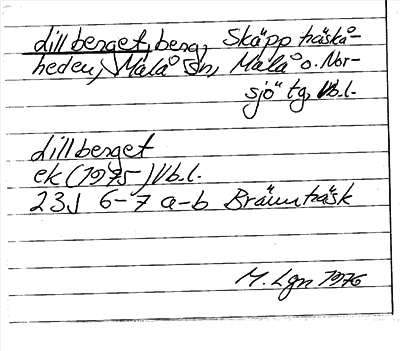 Lillberget, berg, Skäppträskå-
heden, Malå sn, Malå o. Nor-
sjö tg, Vb.l.
Lillberget
ek (1975) Vb.l.
23J 6-7 a-b Brännträsk
M. Lgn 1976